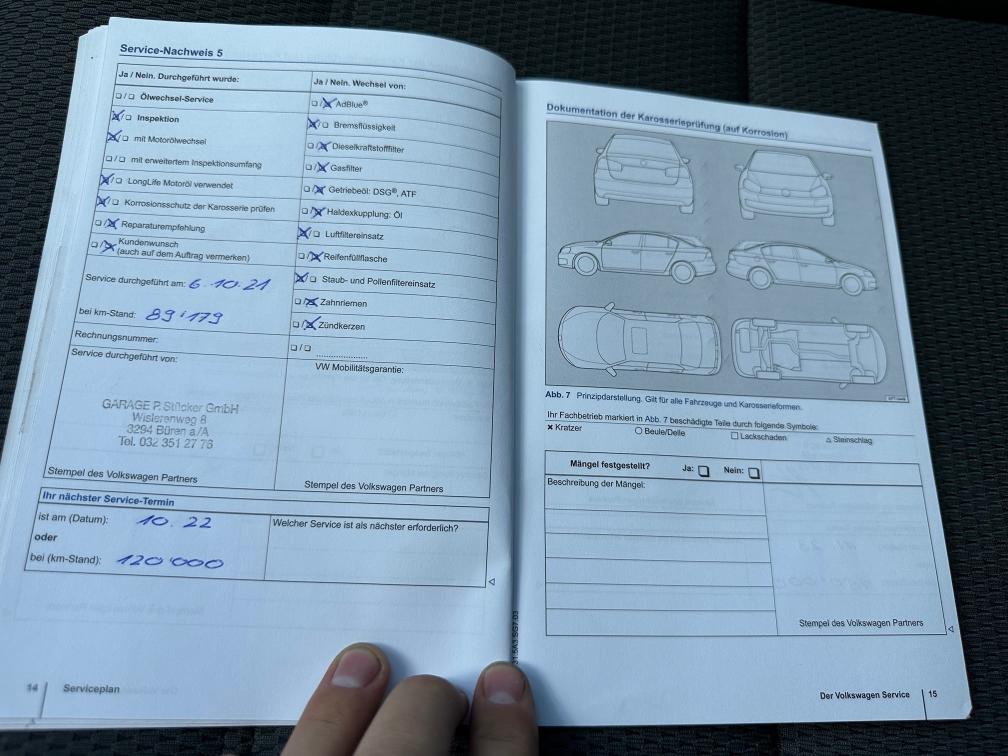 Service-Nachweis 5
Ja / Nein. Durchgeführt wurde:
❏/❏ Ölwechsel-Service
☒/❏ Inspektion
☒/❏ mit Motorölwechsel
❏/❏ mit erweitertem Inspektionsumfang
☒/❏ LongLife Motoröl verwendet
☒/❏ Korrosionsschutz der Karosserie prüfen
❏/☒ Reparaturempfehlung
❏/☒ Kundenwunsch
(auch auf dem Auftrag vermerken)
Service durchgeführt am: 6.10.21
bei km-Stand: 89'179
Rechnungsnummer:
Service durchgeführt von:
GARAGE P. Stücker GmbH
Wislerenweg 8
3294 Büren a/A
Tel. 032 351 27 76
Stempel des Volkswagen Partners
Ja / Nein. Wechsel von:
❏/☒ AdBlue®
☒/❏ Bremsflüssigkeit
❏/☒ Dieselkraftstofffilter
❏/☒ Gasfilter
❏/☒ Getriebeöl: DSG®, ATF
❏/☒ Haldexkupplung: Öl
☒/❏ Luftfiltereinsatz
❏/☒ Reifenfüllflasche
☒/❏ Staub- und Pollenfiltereinsatz
❏/☒ Zahnriemen
❏/☒ Zündkerzen
❏/❏ ....................
VW Mobilitätsgarantie:
Stempel des Volkswagen Partners
Ihr nächster Service-Termin
ist am (Datum): 10. 22
oder
bei (km-Stand): 120'000
Welcher Service ist als nächster erforderlich?
14 Serviceplan
Dokumentation der Karosserieprüfung (auf Korrosion)
Abb. 7 Prinzipdarstellung. Gilt für alle Fahrzeuge und Karosserieformen.
Ihr Fachbetrieb markiert in Abb. 7 beschädigte Teile durch folgende Symbole:
✕ Kratzer ○ Beule/Delle □ Lackschaden △ Steinschlag
Mängel festgestellt? Ja: ❏ Nein: ❏
Beschreibung der Mängel:
Stempel des Volkswagen Partners
Der Volkswagen Service 15